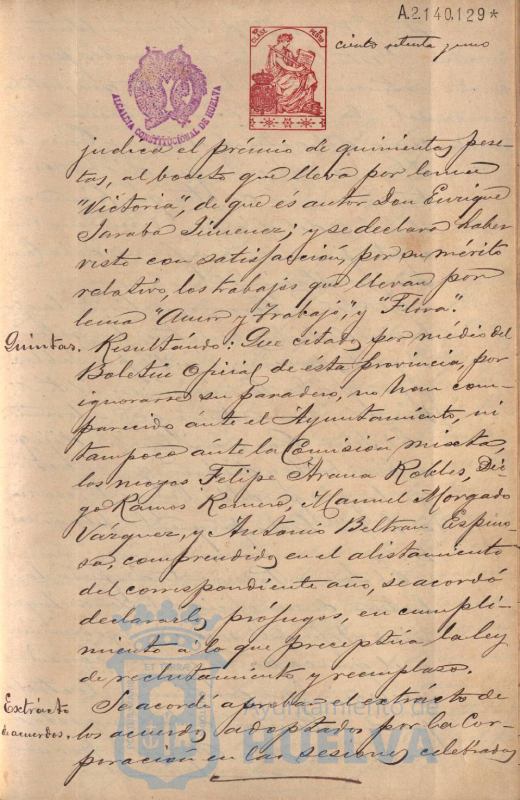 A.2.140.129*
ciento setenta y uno
ALCALDIA CONSTITUCIONAL DE HUELVA
judica el prémio de quinientas pese-
tas, al boceto que lleva por lema
"Victoria", de que és autor Don Enrique
Jaraba Jimenez; y se declara haber
visto con satisfacción, por su mérito
relativo, los trabajos que llevan por
lema "Amor y Trabajo", y "Flora".
Quintas. Resultando: Que citados por médio del
Boletin Oficial de ésta provincia, por
ignorarse su paradero, no han com-
parecido ánte el Ayuntamiento, ni
tampoco ánte la Comisión mixta,
los mozos Felipe Arana Robles, Die-
go Ramos Romero, Manuel Morgado
Vázquez, y Antonio Beltran Espino-
sa, comprendidos en el alistamiento
del correspondiente año, se acordó
declararlos prófugos, en cumpli-
miento á lo que preceptúa la ley
de reclutamiento y reemplazo.
Extrácto de acuerdos. Se acordó aprobar el extrácto de
los acuerdos adoptados por la Cor-
poración en las sesiones celebradas
Ayuntamiento de
HUELVA